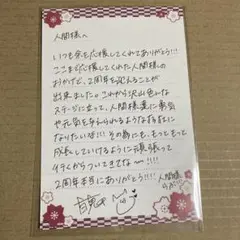 人間様へ
いつも余を応援してくれてありがとう!!!
ここまで応援してくれた人間様の
おかげで、2周年を迎えることが
出来ました。これから沢山色んな
ステージに立って、人間様達に勇気
や元気を与えられるような存在に
なりたいな!!! その為にも、もっともっと
成長していけるように頑張って
行くからついてきてな~!!!!
2周年本当にありがとう!!!!
人間様